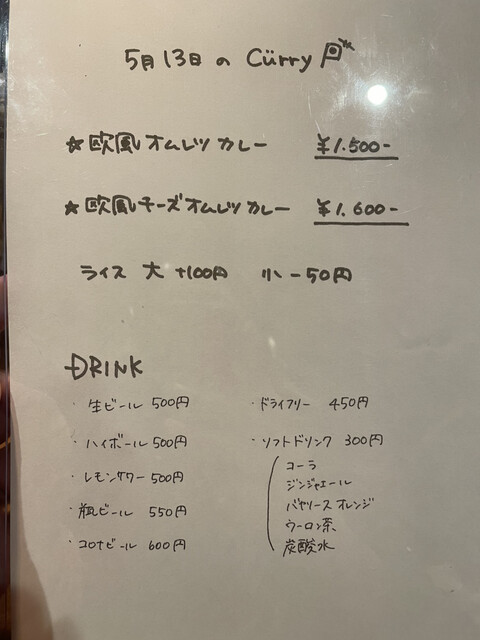 5月13日 の Cürry
☆欧風オムレツカレー ¥1.500-
☆欧風チーズオムレツカレー ¥1.600-
ライス 大 +100円 小 -50円
DRINK
・生ビール 500円
・ハイボール 500円
・レモンサワー 500円
・瓶ビール 550円
・コロナビール 600円
・ドライフリー 450円
・ソフトドリンク 300円
コーラ
ジンジャエール
バヤリースオレンジ
ウーロン茶
炭酸水